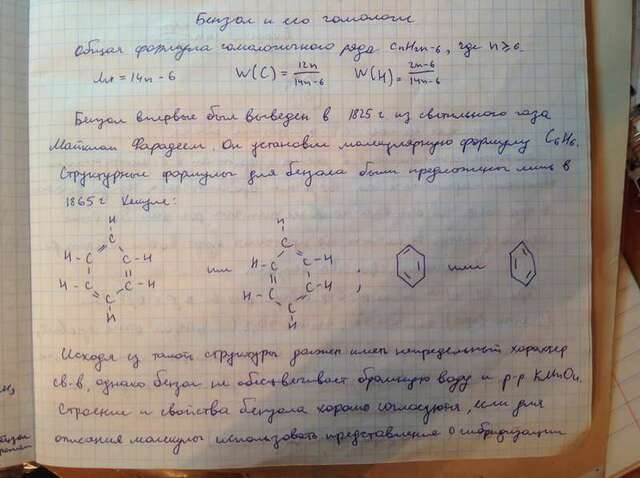 Бензол и его гомологи
Общая формула гомологичного ряда CnH2n-6, где n⩾6.
Mr = 14n - 6 W(C) = 12n/14n-6 W(H) = 2n-6/14n-6
Бензол впервые был выведен в 1825 г из светильного газа
Майклом Фарадеем. Он установил молекулярную формулу C6H6.
Структурные формулы для бензола были предложены лишь в
1865 г Кекуле:
или , или
Исходя из такой структуры должен иметь непредельный характер
св-в, однако бензол не обесцвечивает бромную воду и р-р KMnO4.
Строение и свойства бензола хорошо согласуются, если для
описания молекулы использовать представление о гибридизации